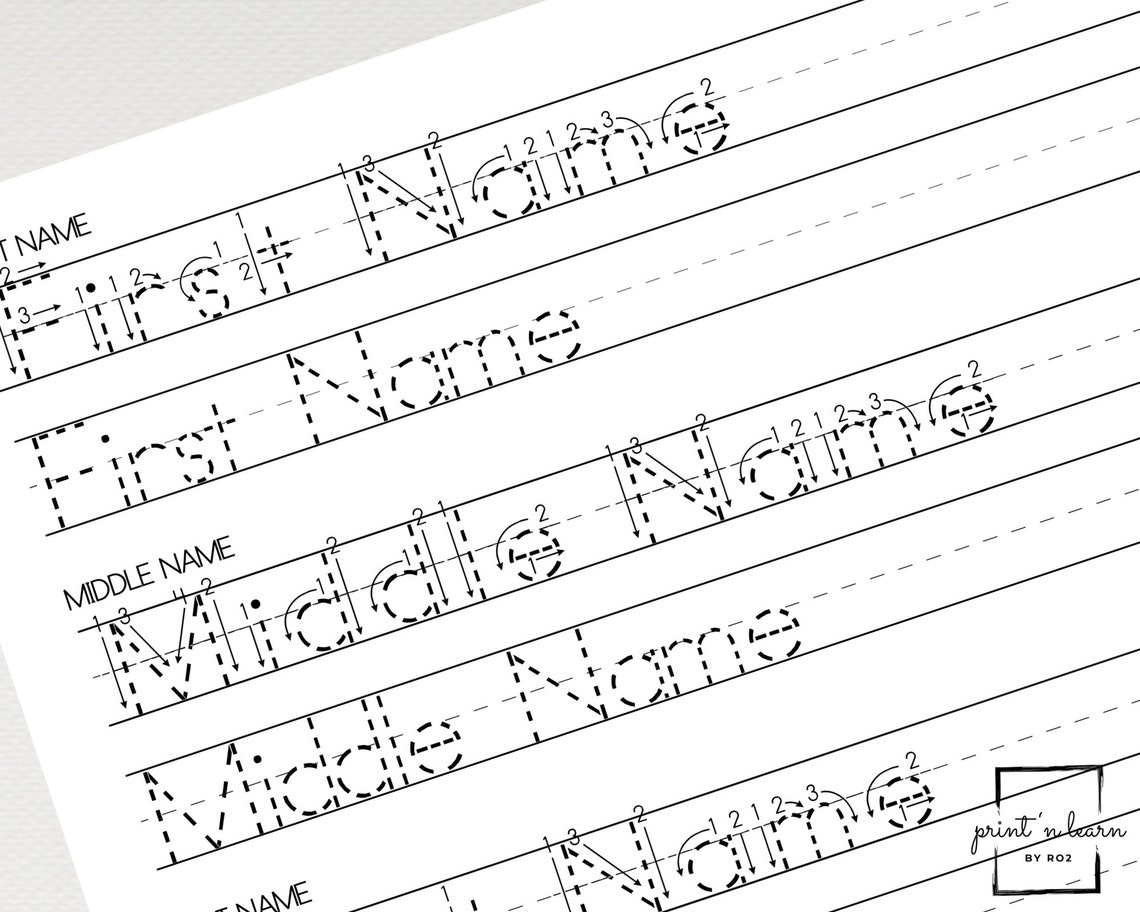 T NAME
First Name
First Name
MIDDLE NAME
Middle Name
Middle Name
T NAME
Name
print 'n learn
BY RO2